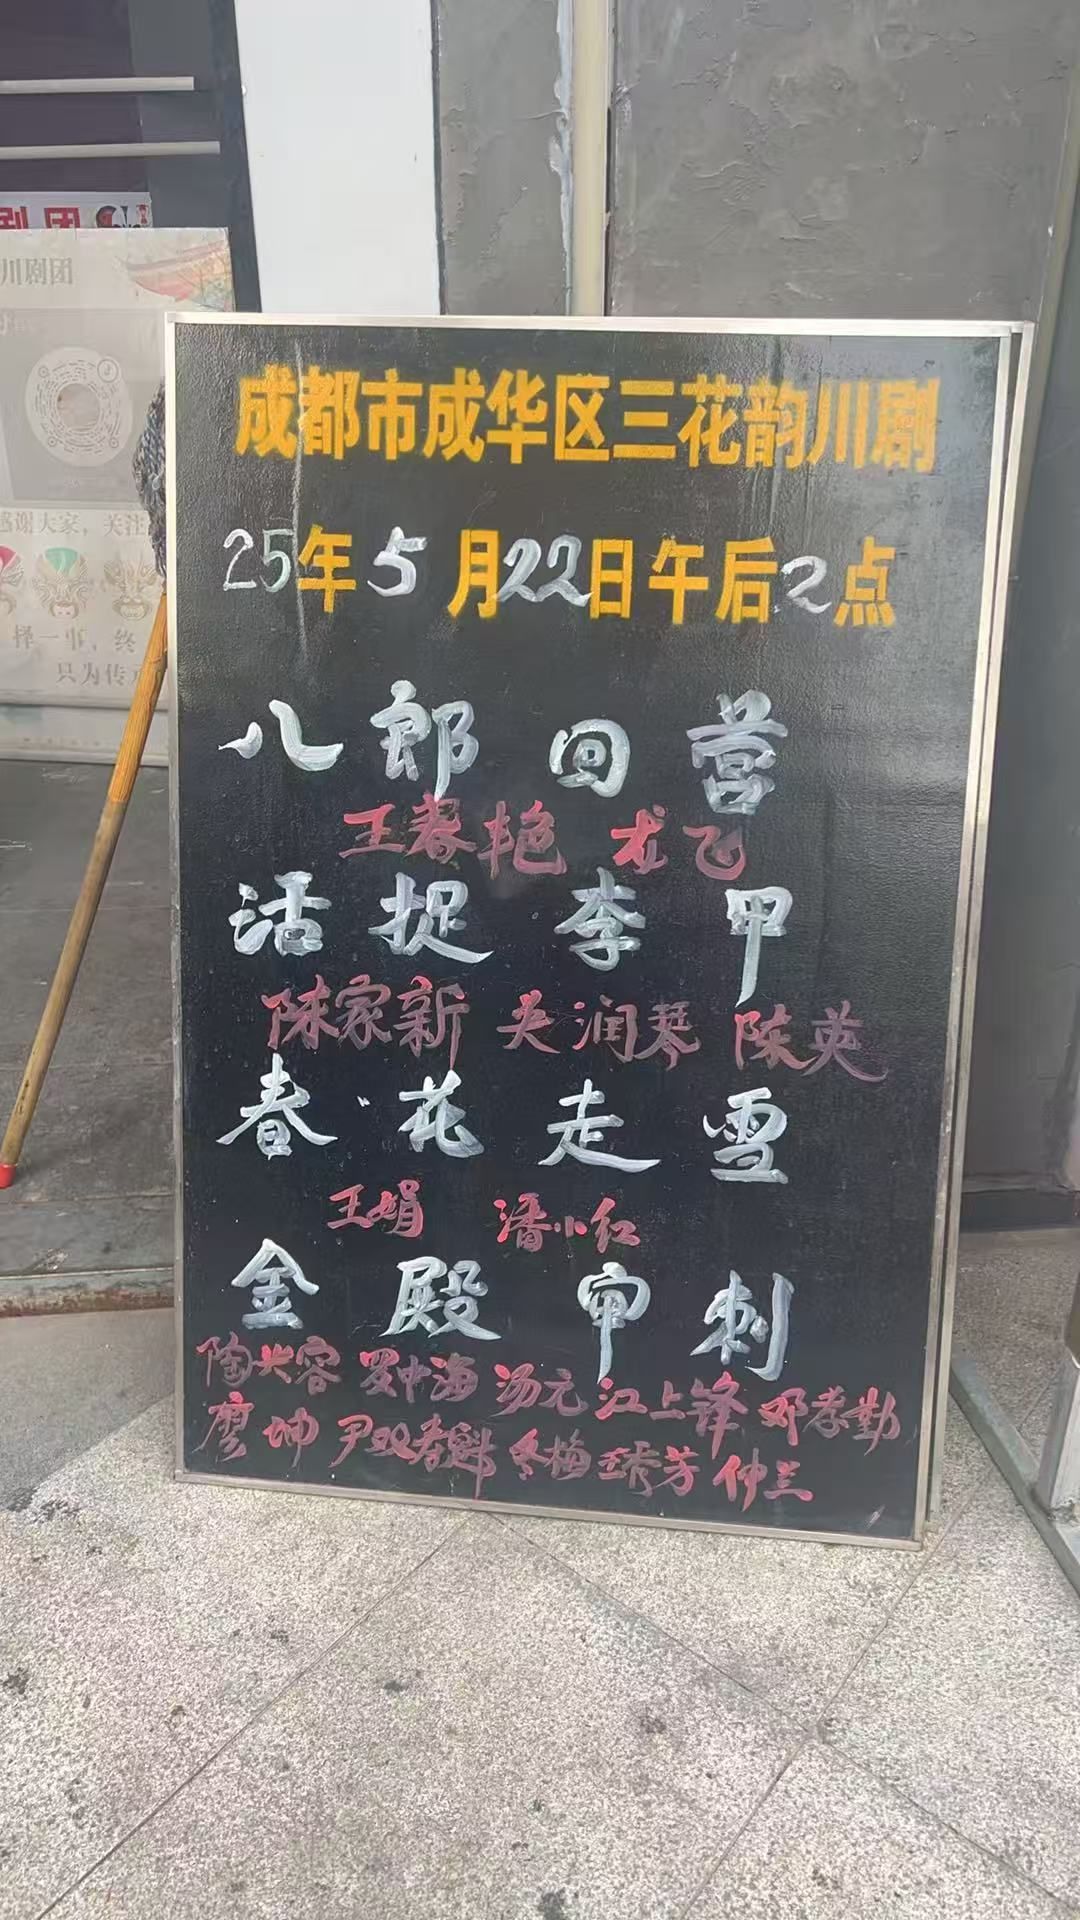 剧团
川剧团
感谢大家，关注
择一事，终
只为传承
成都市成华区三花韵川剧
25年5月22日午后2点
八郎回营
王春艳 龙飞
活捉李甲
陈家新 吴润琴 陈英
春花走雪
王娟 潘小红
金殿审刺
陶兴容 罗中海 汤元 江上锋 邓孝勤
廖坤 尹双春魁 冬梅 琇芳 仲兰